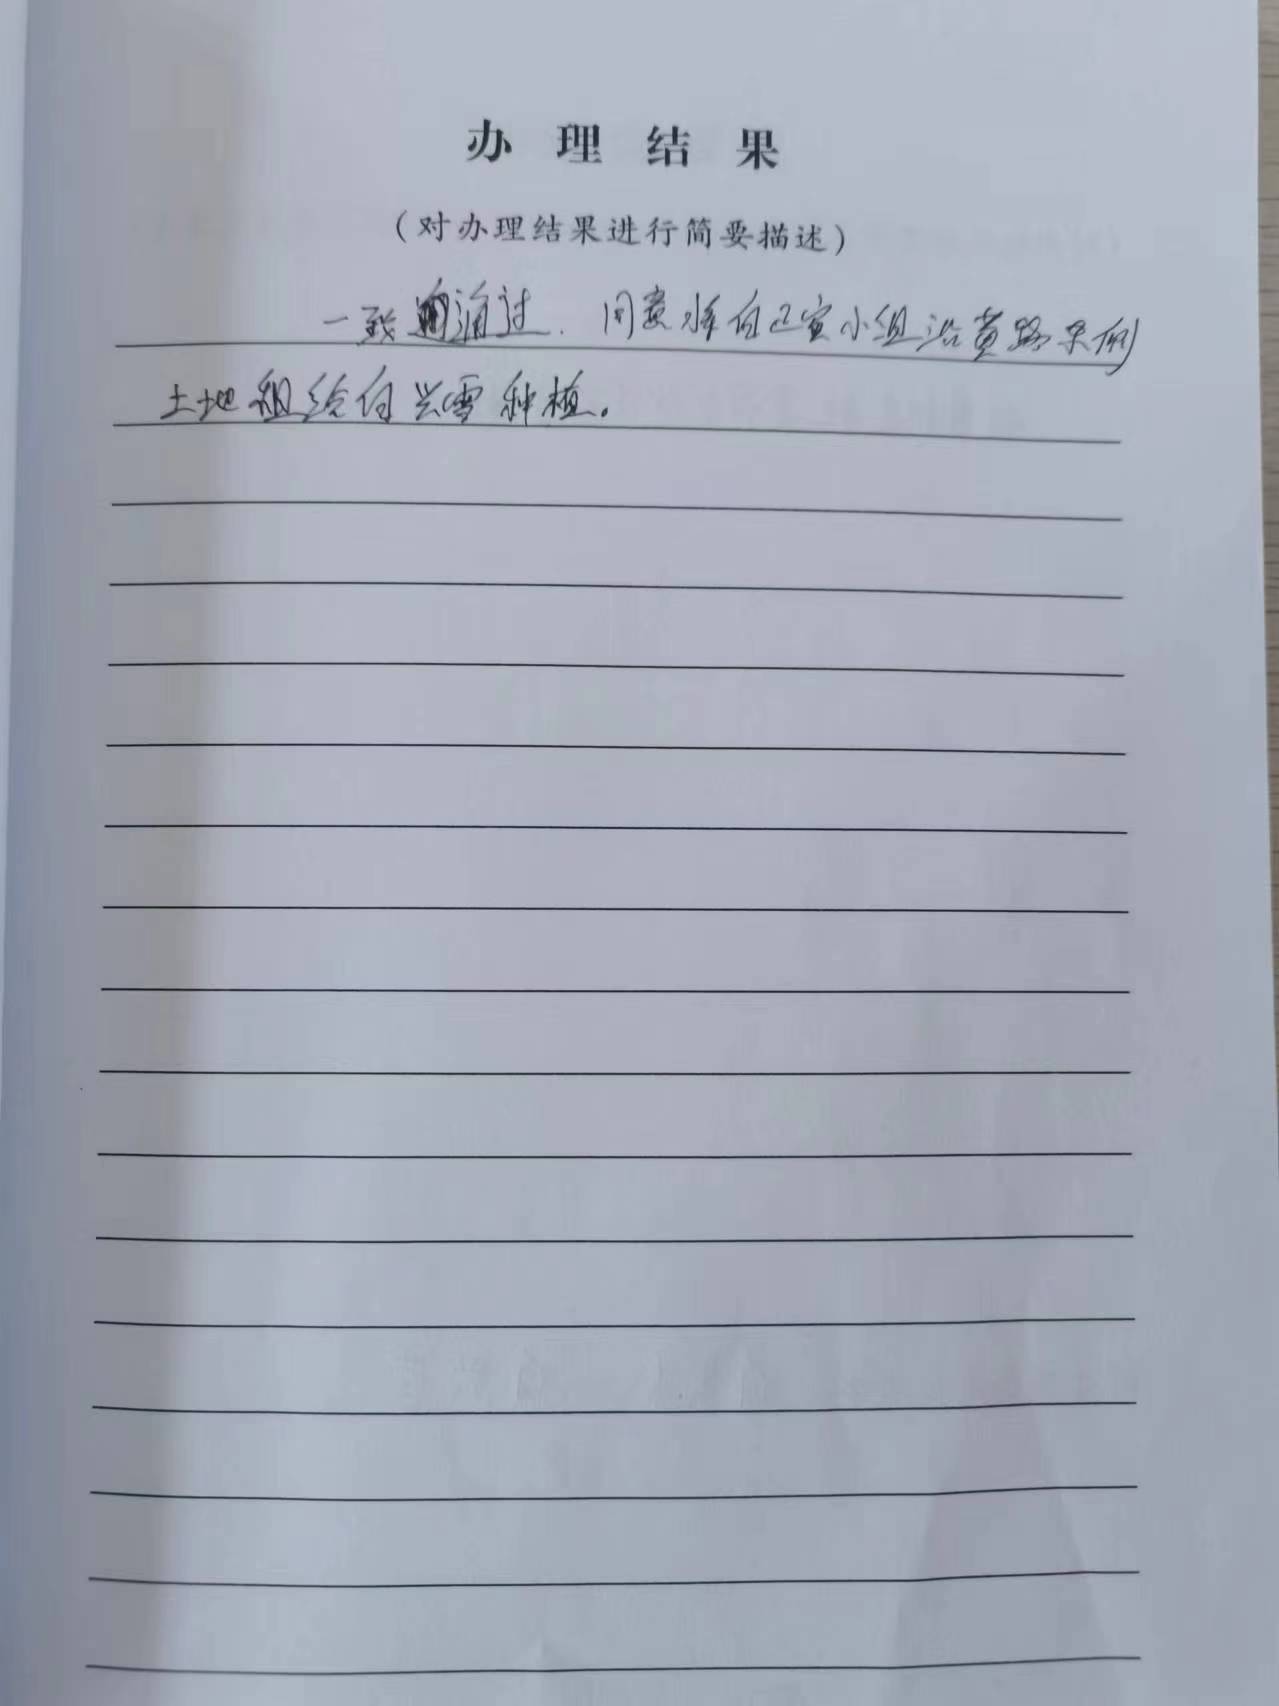 办理结果
（对办理结果进行简要描述）
一致通过．同意将白正宣小组沿黄路东侧
土地租给白兴雪种植。